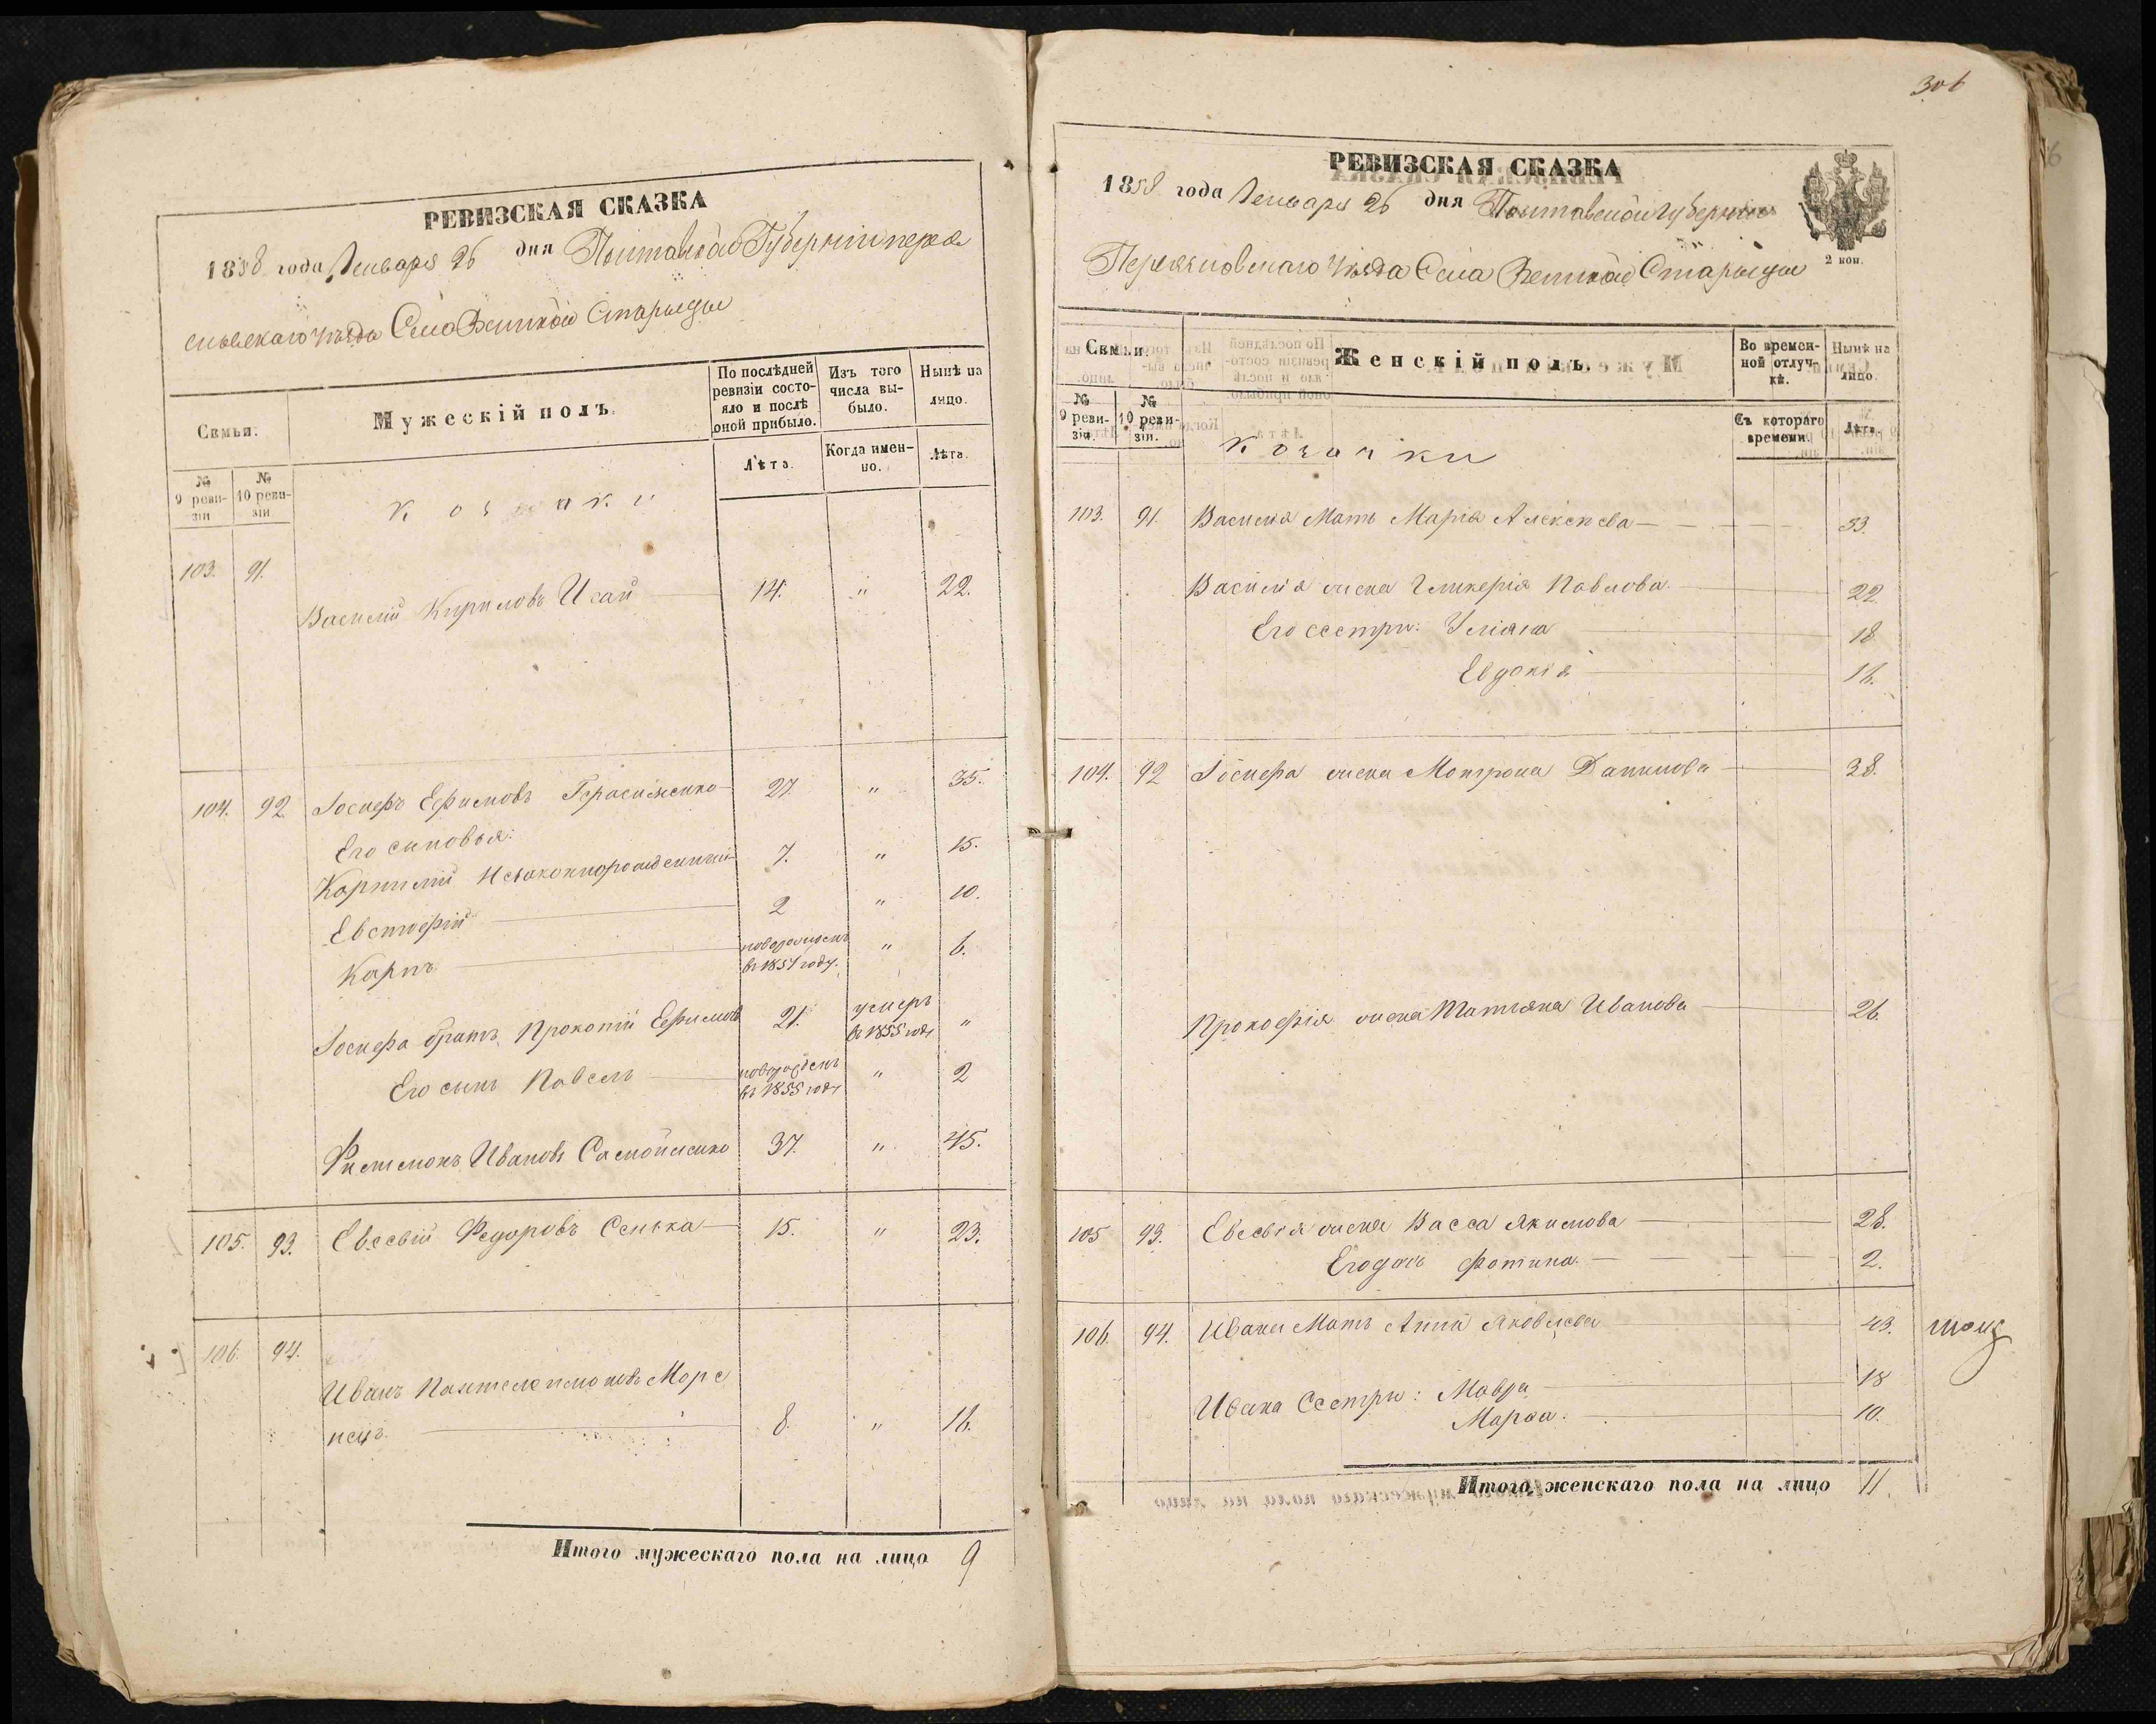 РЕВИЗСКАЯ СКАЗКА
1858 года Января 26 дня Полтавской Губерніи перея
славскаго уезда Села Великой Старыцы
Семьи.
Мужескій полъ.
По послѣдней ревизіи состояло и послѣ оной прибыло.
Изъ того числа выбыло.
Нынѣ на лицо.
№ 9 ревизіи
№ 10 ревизіи
козаки
Лѣта.
Когда именно.
Лѣта.
103. 91.
Василій Кириловъ Исай 14. " 22.
104. 92. Іосифъ Ефимовъ Герасименко 27. " 35.
Его сыновья:
Корнилій Незаконнорожденный 7. " 15.
Евстафій 2 " 10.
Карпъ новорожденъ в 1851 году. " 6.
Іосифа братъ Прокопій Ефимовъ 21. умеръ в 1855 году "
Его сынъ Павелъ новорожденъ въ 1855 году " 2
Филимонъ Ивановъ Самойленко 37. " 45.
105. 93. Евсевій Федоровъ Сенька 15. " 23.
106. 94.
Иванъ Пантелеимоновъ Море
нецъ. 8. " 16.
Итого мужескаго пола на лицо 9
306
РЕВИЗСКАЯ СКАЗКА
1858 года Января 26 дня Полтавской Губерніи
Переяславскаго Уезда Села Великой Старыцы
2 коп.
Семьи.
Женскій полъ.
Во временной отлучкѣ.
Нынѣ на лицо.
№ 9 ревизіи.
№ 10 ревизіи.
козачки
Съ котораго времени.
Лѣта.
103. 91. Василія Мать Марія Алексѣева 53.
Василія жена Гликерія Павлова 22
Его сестры: Уліяна 18
Евдокія 16.
104. 92 Іосифа жена Мотрона Данилова 38.
Прокофія жена Татіяна Иванова 26.
105 93. Евсевія жена Васса Якимова 28.
Его дочь Фотина. 2.
106. 94. Ивана Мать Анна Яковлева 43.
Ивана Сестры: Мавра 18
Марфа. 10.
Итого женскаго пола на лицо 11.